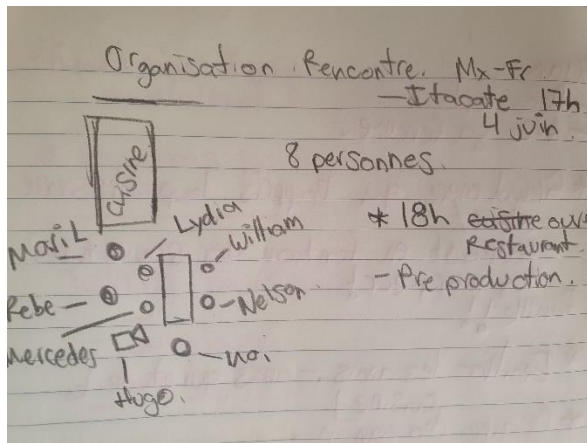 Organisation Rencontre. Mx-Fr
- Itacate 17h
4 juin.
8 personnes.
cuisine
Lydia
William
* 18h cuisine ouv
Restaurant
- Pre production.
Mari L
Rebe
Nelson
Mercedes
moi
Hugo.